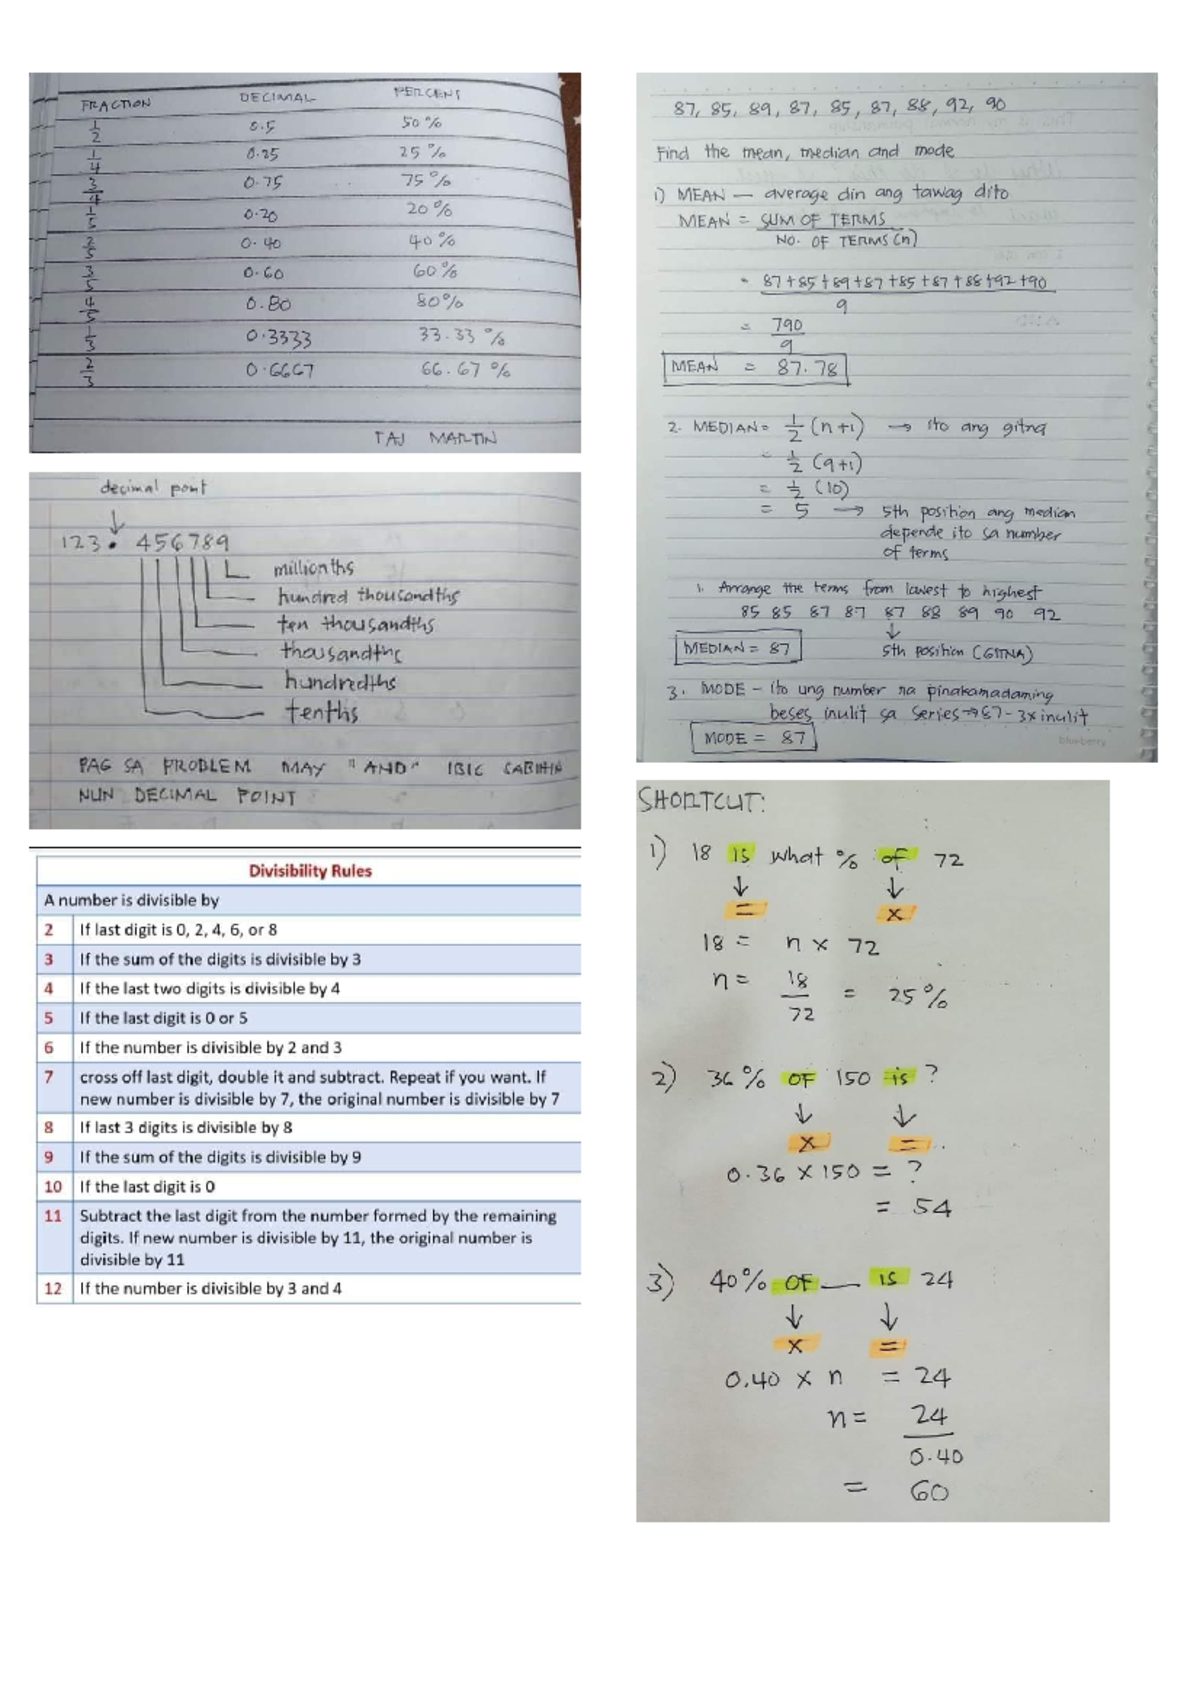 FRACTION DECIMAL PERCENT
1/2 0.5 50%
1/4 0.25 25%
3/4 0.75 75%
1/5 0.20 20%
2/5 0.40 40%
3/5 0.60 60%
4/5 0.80 80%
1/3 0.3333 33.33%
2/3 0.6667 66.67%
TAJ MARTIN
decimal point
123.456789
millionths
hundred thousandths
ten thousandths
thousandths
hundredths
tenths
PAG SA PROBLEM MAY "AND" IBIG SABIHIN
NUN DECIMAL POINT
Divisibility Rules
A number is divisible by
2 If last digit is 0, 2, 4, 6, or 8
3 If the sum of the digits is divisible by 3
4 If the last two digits is divisible by 4
5 If the last digit is 0 or 5
6 If the number is divisible by 2 and 3
7 cross off last digit, double it and subtract. Repeat if you want. If
new number is divisible by 7, the original number is divisible by 7
8 If last 3 digits is divisible by 8
9 If the sum of the digits is divisible by 9
10 If the last digit is 0
11 Subtract the last digit from the number formed by the remaining
digits. If new number is divisible by 11, the original number is
divisible by 11
12 If the number is divisible by 3 and 4
87, 85, 89, 87, 85, 87, 88, 92, 90
Find the mean, median and mode
1) MEAN — average din ang tawag dito
MEAN = SUM OF TERMS
NO. OF TERMS (n)
= 87+85+89+87+85+87+88+92+90
9
= 790
9
MEAN = 87.78
2. MEDIAN = 1/2 (n+1) → ito ang gitna
= 1/2 (9+1)
= 1/2 (10)
= 5 → 5th position ang median
depende ito sa number
of terms
1. Arrange the terms from lowest to highest
85 85 87 87 87 88 89 90 92
↓
MEDIAN = 87 5th position (GITNA)
3. MODE - ito ung number na pinakamadaming
beses inulit sa series → 87 - 3x inulit
MODE = 87
blueberry
SHORTCUT:
1) 18 is what % of 72
↓ ↓
= x
18 = n x 72
n = 18
72
= 25%
2) 36% OF 150 is ?
↓ ↓
x =
0.36 x 150 = ?
= 54
3) 40% OF __ is 24
↓ ↓
x =
0.40 x n = 24
n = 24
0.40
= 60